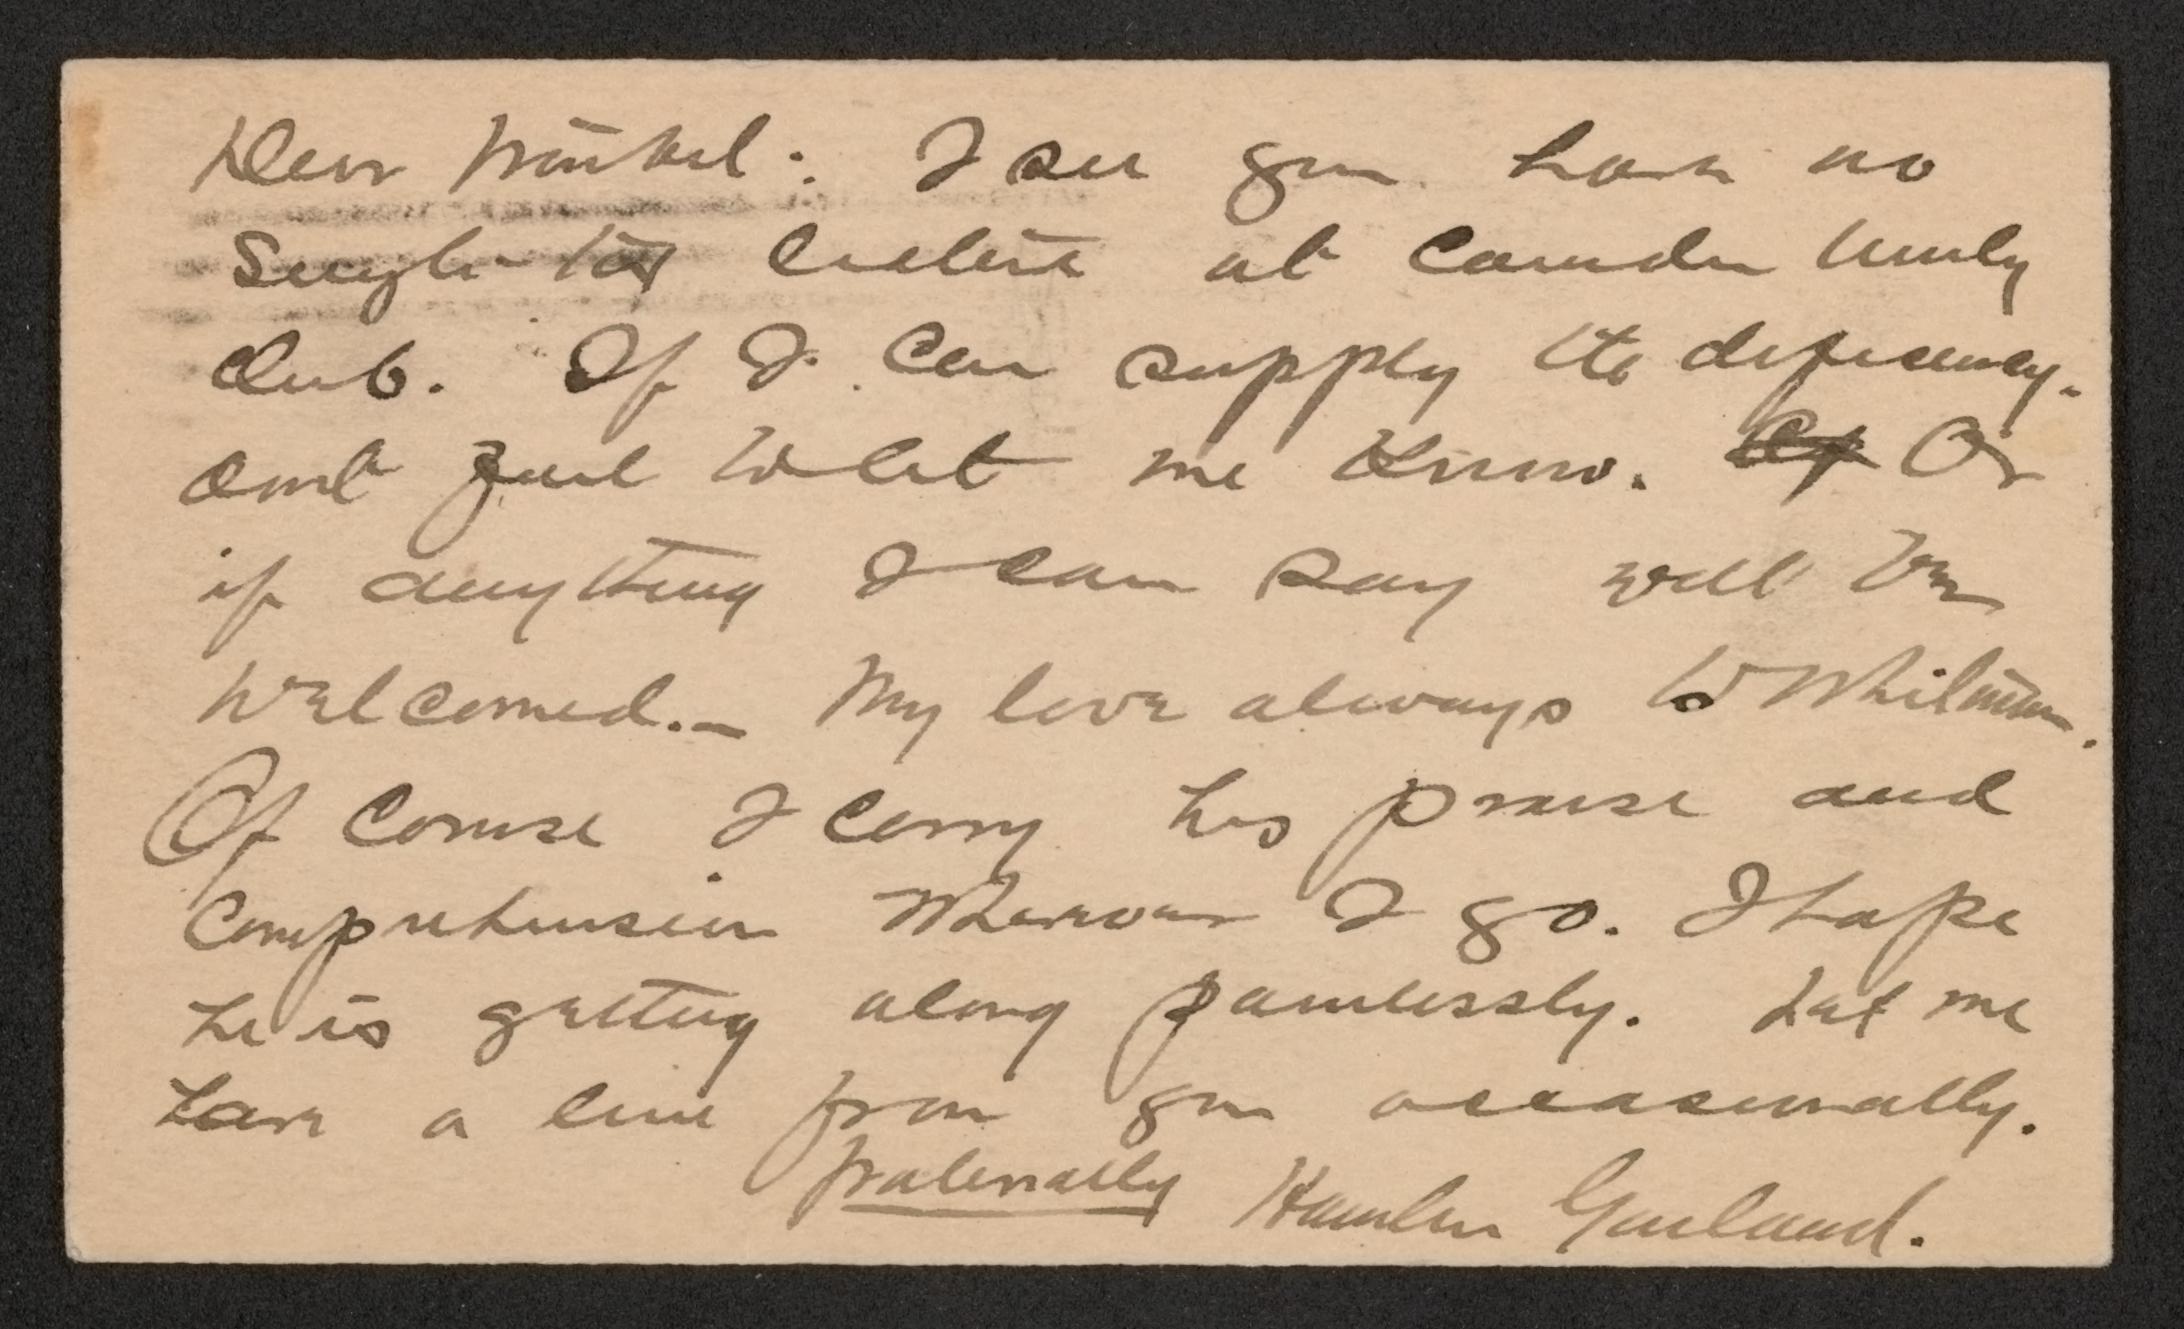 Dear Traubel: I see you have no
Single-tax lecture at Camden Unity
Club. If I can supply the deficiency.
and let me know. Or
if anything I can say will be
welcomed._ My love always to Whitman.
Of course I carry his praise and
comprehension wherever I go. I hope
he is getting along painlessly. Let me
have a line from you occasionally.
fraternally Hamlin Garland.